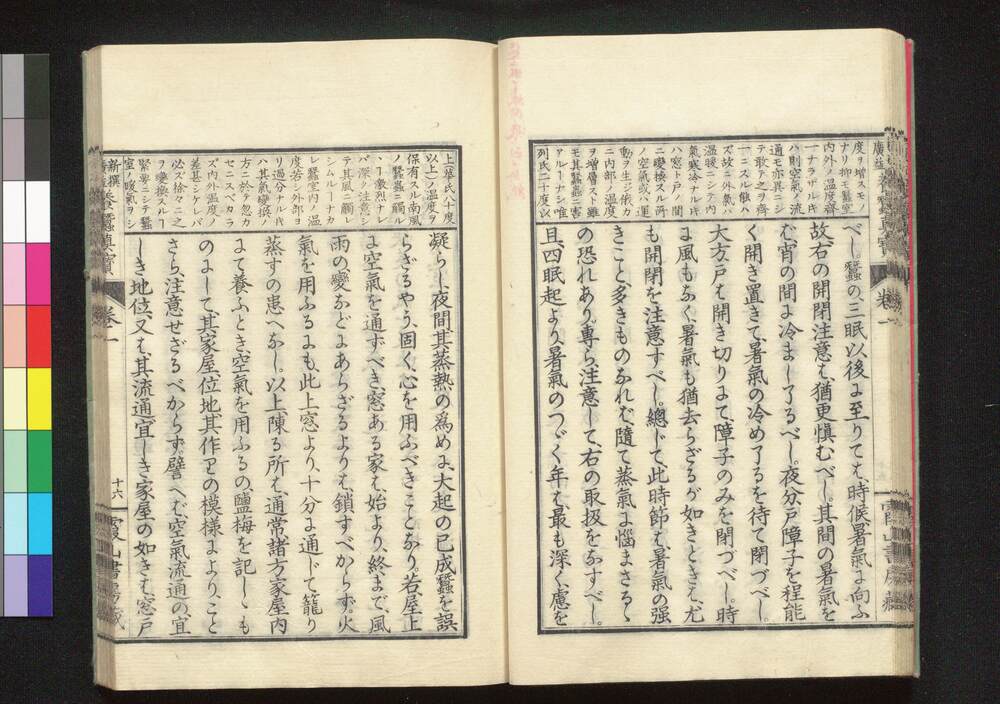 度ヲ増スモノ
ナリ抑モ蠶室
内外ノ温度齊
一ナラザル𪜈
ハ則空氣ノ流
通モ亦異ニシ
テ敢テ之ヲ齊
一ニスル能ハ
ズ故ニ外氣ハ
温暖ニシテ内
氣寒冷ナル𪜈
ハ窓ト戸ノ間
ニ變換スル所
ノ空氣或ハ運
動ヲ生ジ依カ
ニ内部ノ温度
ヲ増層スト雖
モ其蠶蟲ニ害
アルーナシ唯
列氏二十度以
べし。蠶の三眠以後に至りても、時候暑氣に向ふ
故、右の開閉注意も、猶更愼むべし。其間の暑氣を
む、宵の間に冷まし了るべし。夜分戸障子を程能
く開き置きて、暑氣の冷め了るを待て閉づべし。
大方戸も開き切りにて、障子のみを閉づべし。時
に風もなく、暑氣も猶去らざるが如きときも、尤
も開閉を注意すべし。總じて此時節も、暑氣の强
きこと、多きものなれば、隨て蒸氣に惱まさるゝ
の恐れあり、專ら注意して、右の取扱をなすべし。
且、四眠起より、暑氣のつゞく年も、最も深く、慮を
上華氏八十度
以上ノ温度ヲ
保有スル南風
ノ蠶蟲ニ觸ル
ー激烈ナレ
バ深ク注意シ
テ其風ニ觸レ
シムルーナカ
レ蠶室内ノ温
度若シ外部ヨ
リ過分ナル𪜈
ハ其氣變換ノ
方ニ於テ忽カ
セニスベカラ
ズ内外温度ノ
差甚シケレバ
必ズ徐々ニ之
ヲ變換スルー
緊要ニシテ蠶
室ノ暖氣ヲシ
凝らし、夜間其蒸熱の爲めに、大起の已成蠶を誤
らざるやう、固く、心を用ふべきことなり。若、屋上
に空氣を通ずべき、窓ある家も、始より、終まで、風
雨の變などにあらざるよりも、鎖すべからず。火
氣を用ふるにも、此上窓より、十分に通じて、籠り
蒸すの患へなし。以上陳る所も、通常諸方家屋内
にて養ふとき、空氣を用ふるの、鹽梅を記しゝも
のにして、其家屋、位地、其作りの模様により、こと
さら、注意せざるべからず。譬へば空氣流通の、宜
しき地位、又も、其流通宜しき家屋の如きも、窓戸
新撰養蠶眞寳 卷一
十六
霞山書房藏